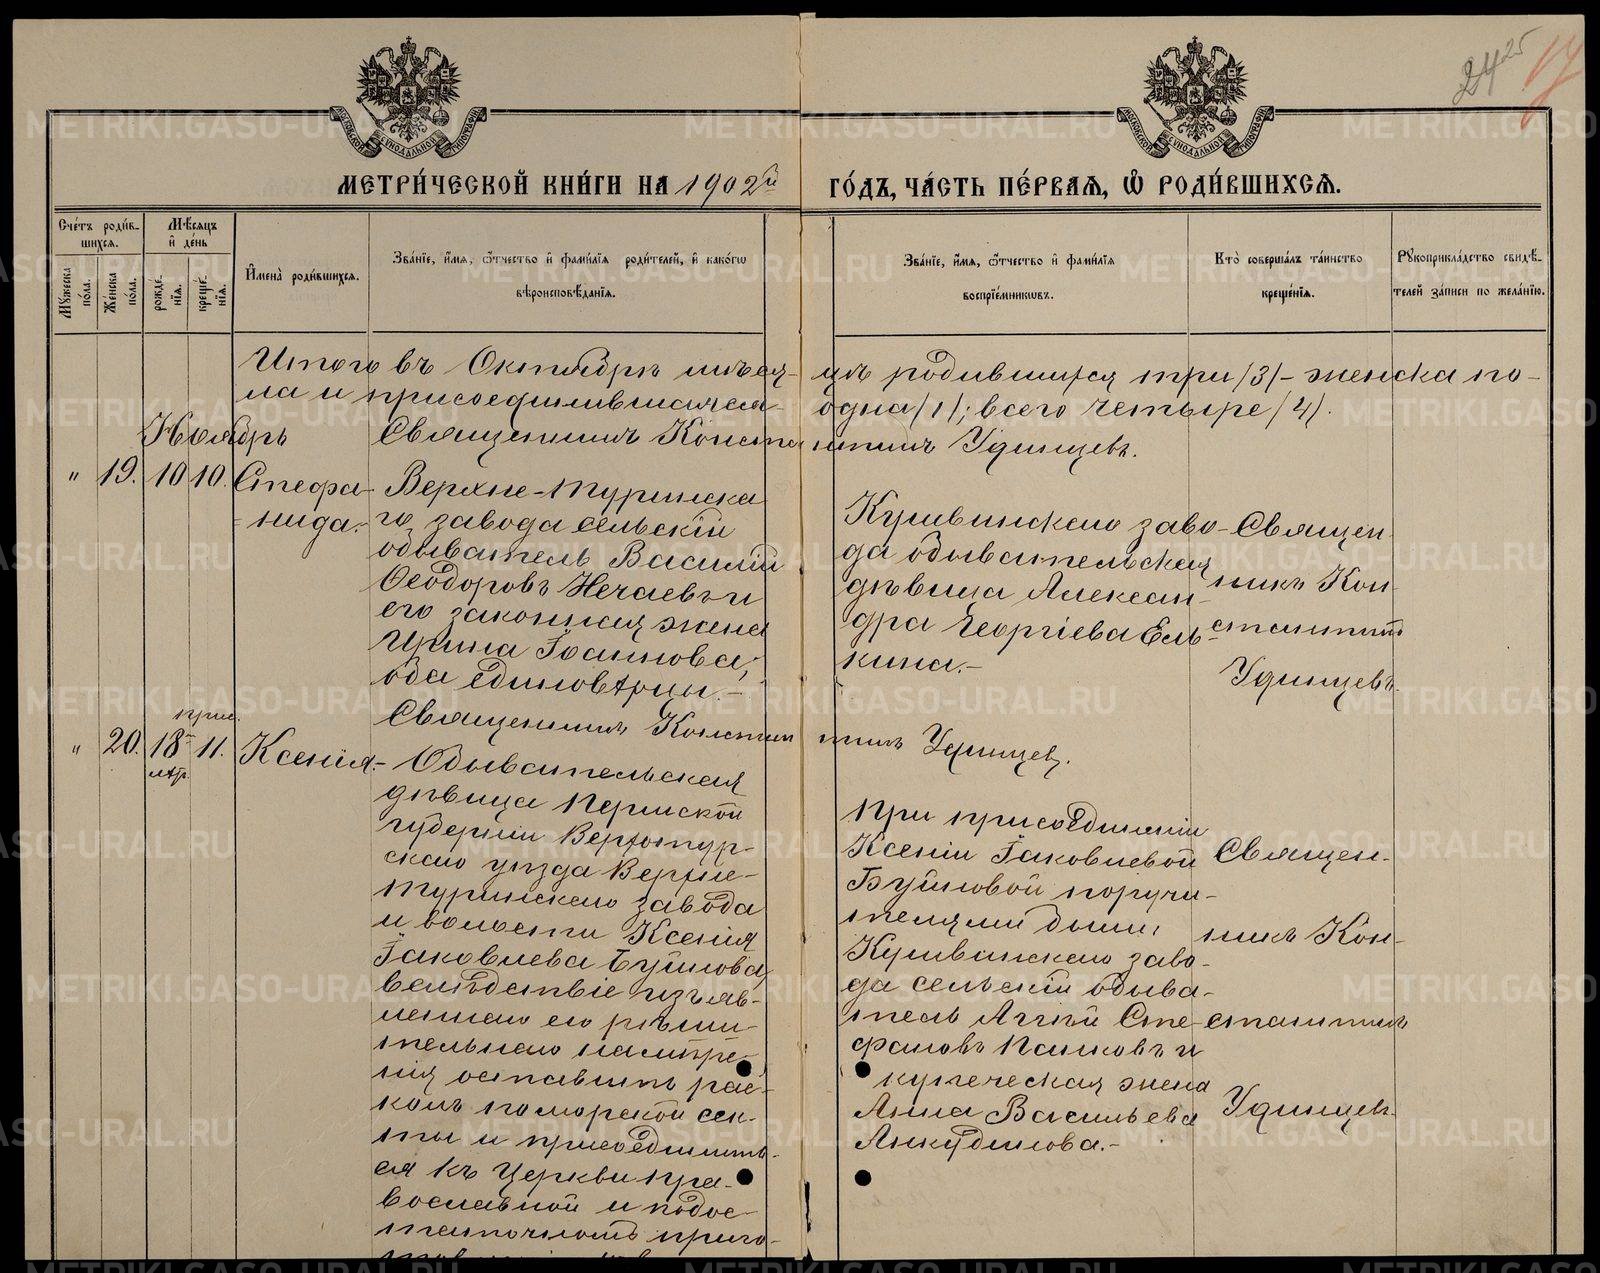 24 25 17
МОСКОВСКОЙ СѴНОДАЛЬНОЙ ТИПОГРАФІИ
МОСКОВСКОЙ СѴНОДАЛЬНОЙ ТИПОГРАФІИ
МЕТРИ́ЧЕСКОЙ КНИ́ГИ НА 1902й ГО́ДЪ, ЧА́СТЬ ПЕ́РВАЯ, Ѽ РОДИ́ВШИХСЯ.
Сче́тъ роди́в-
шихся.
Мꙋ́жеска по́ла.
Же́нска по́ла.
Мѣ́сяцъ
и҆ де́нь
рожде́-
нїя.
креще́-
нїя.
И҆мена̀ роди́вшихся.
Зва́нїе, и҆́мя, ѻ҆́тчество и҆ фами́лїя роди́телей, и҆ како́гѡ
вѣроисповѣ́данїя.
Зва́нїе, и҆́мя, ѻ҆́тчество и҆ фами́лїя
воспрїе́мникѡвъ.
Кто̀ соверша́лъ та́инство
креще́нїя.
Рꙋкоприкла́дство свидѣ́-
телей за́писи по жела́нїю.
Итого въ Октябрѣ мѣся- цѣ родившихся три /3/ - женска по-
ла и присоединившаяся одна /1/; всего четыре /4/.
Ноябрь
Священникъ Константинъ Удинцевъ.
" 19. 10 10. Стефа-
нида.
Верхне-Туринска
го завода сельскій
обыватель Василій
Ѳеодоровъ Нечаевъ и
его законная жена
Ирина Іоаннова;
оба единовѣрцы.-
Кушвинскаго заво-
да обывательская
дѣвица Алексан-
дра Георгіева Ель
кина.-
Священ-
никъ Кон-
стантинъ
Удинцевъ.
Священникъ Константинъ Удинцевъ.
" 20. 18 прис. 11. Ксенія.-
лѣтъ
Обывательская
дѣвица Пермской
губерніи Верхотур-
скаго уѣзда Верхне-
Туринскаго завода
и волости Ксенія
Іаковлева Буйлова,
вслѣдствіе изъяв-
леннаго ею рѣши-
тельнаго намѣре-
нія оставить рас-
колъ поморской сек-
ты и присоединить-
ся къ Церкви Пра-
вославной и по дос-
таточномъ приго-
При присоединеніи
Ксеніи Іаковлевой
Буйловой поручи-
телями были:
Кушвинскаго заво-
да сельскій обыва-
тель Аггей Сте-
фановъ Пашковъ и
купеческая жена
Анна Васильева
Анкудинова.-
Священ-
никъ Кон-
стантинъ
Удинцевъ.